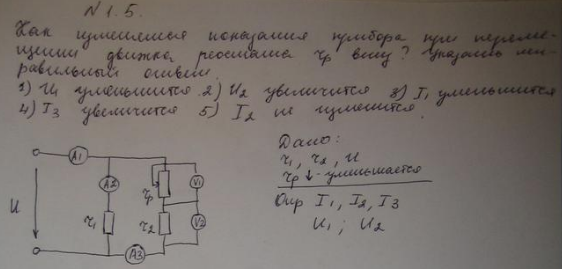 N 1.5.
Как изменятся показания прибора при перемещ-
щении движка реостата rр вниз? Указать неп-
равильный ответ.
1) U1 уменьшится. 2) U2 увеличится 3) I1 уменьшится
4) I3 увеличится 5) I2 не изменится.
Дано:
r1, r2, U
rр ↓ - уменьшается
Опр I1, I2, I3
U1; U2
A1
A2
rр
V1
U
r1
r2
V2
A3